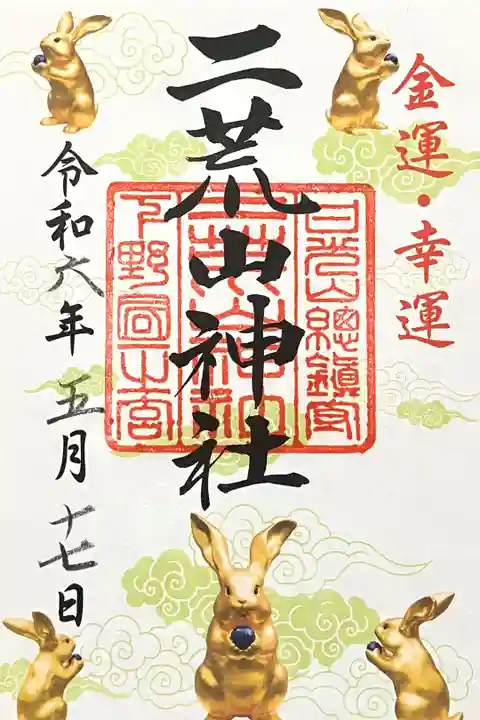 金運・幸運
二荒山神社
日光山總鎮守
二荒山神社
下野國一之宮
令和六年五月十七日